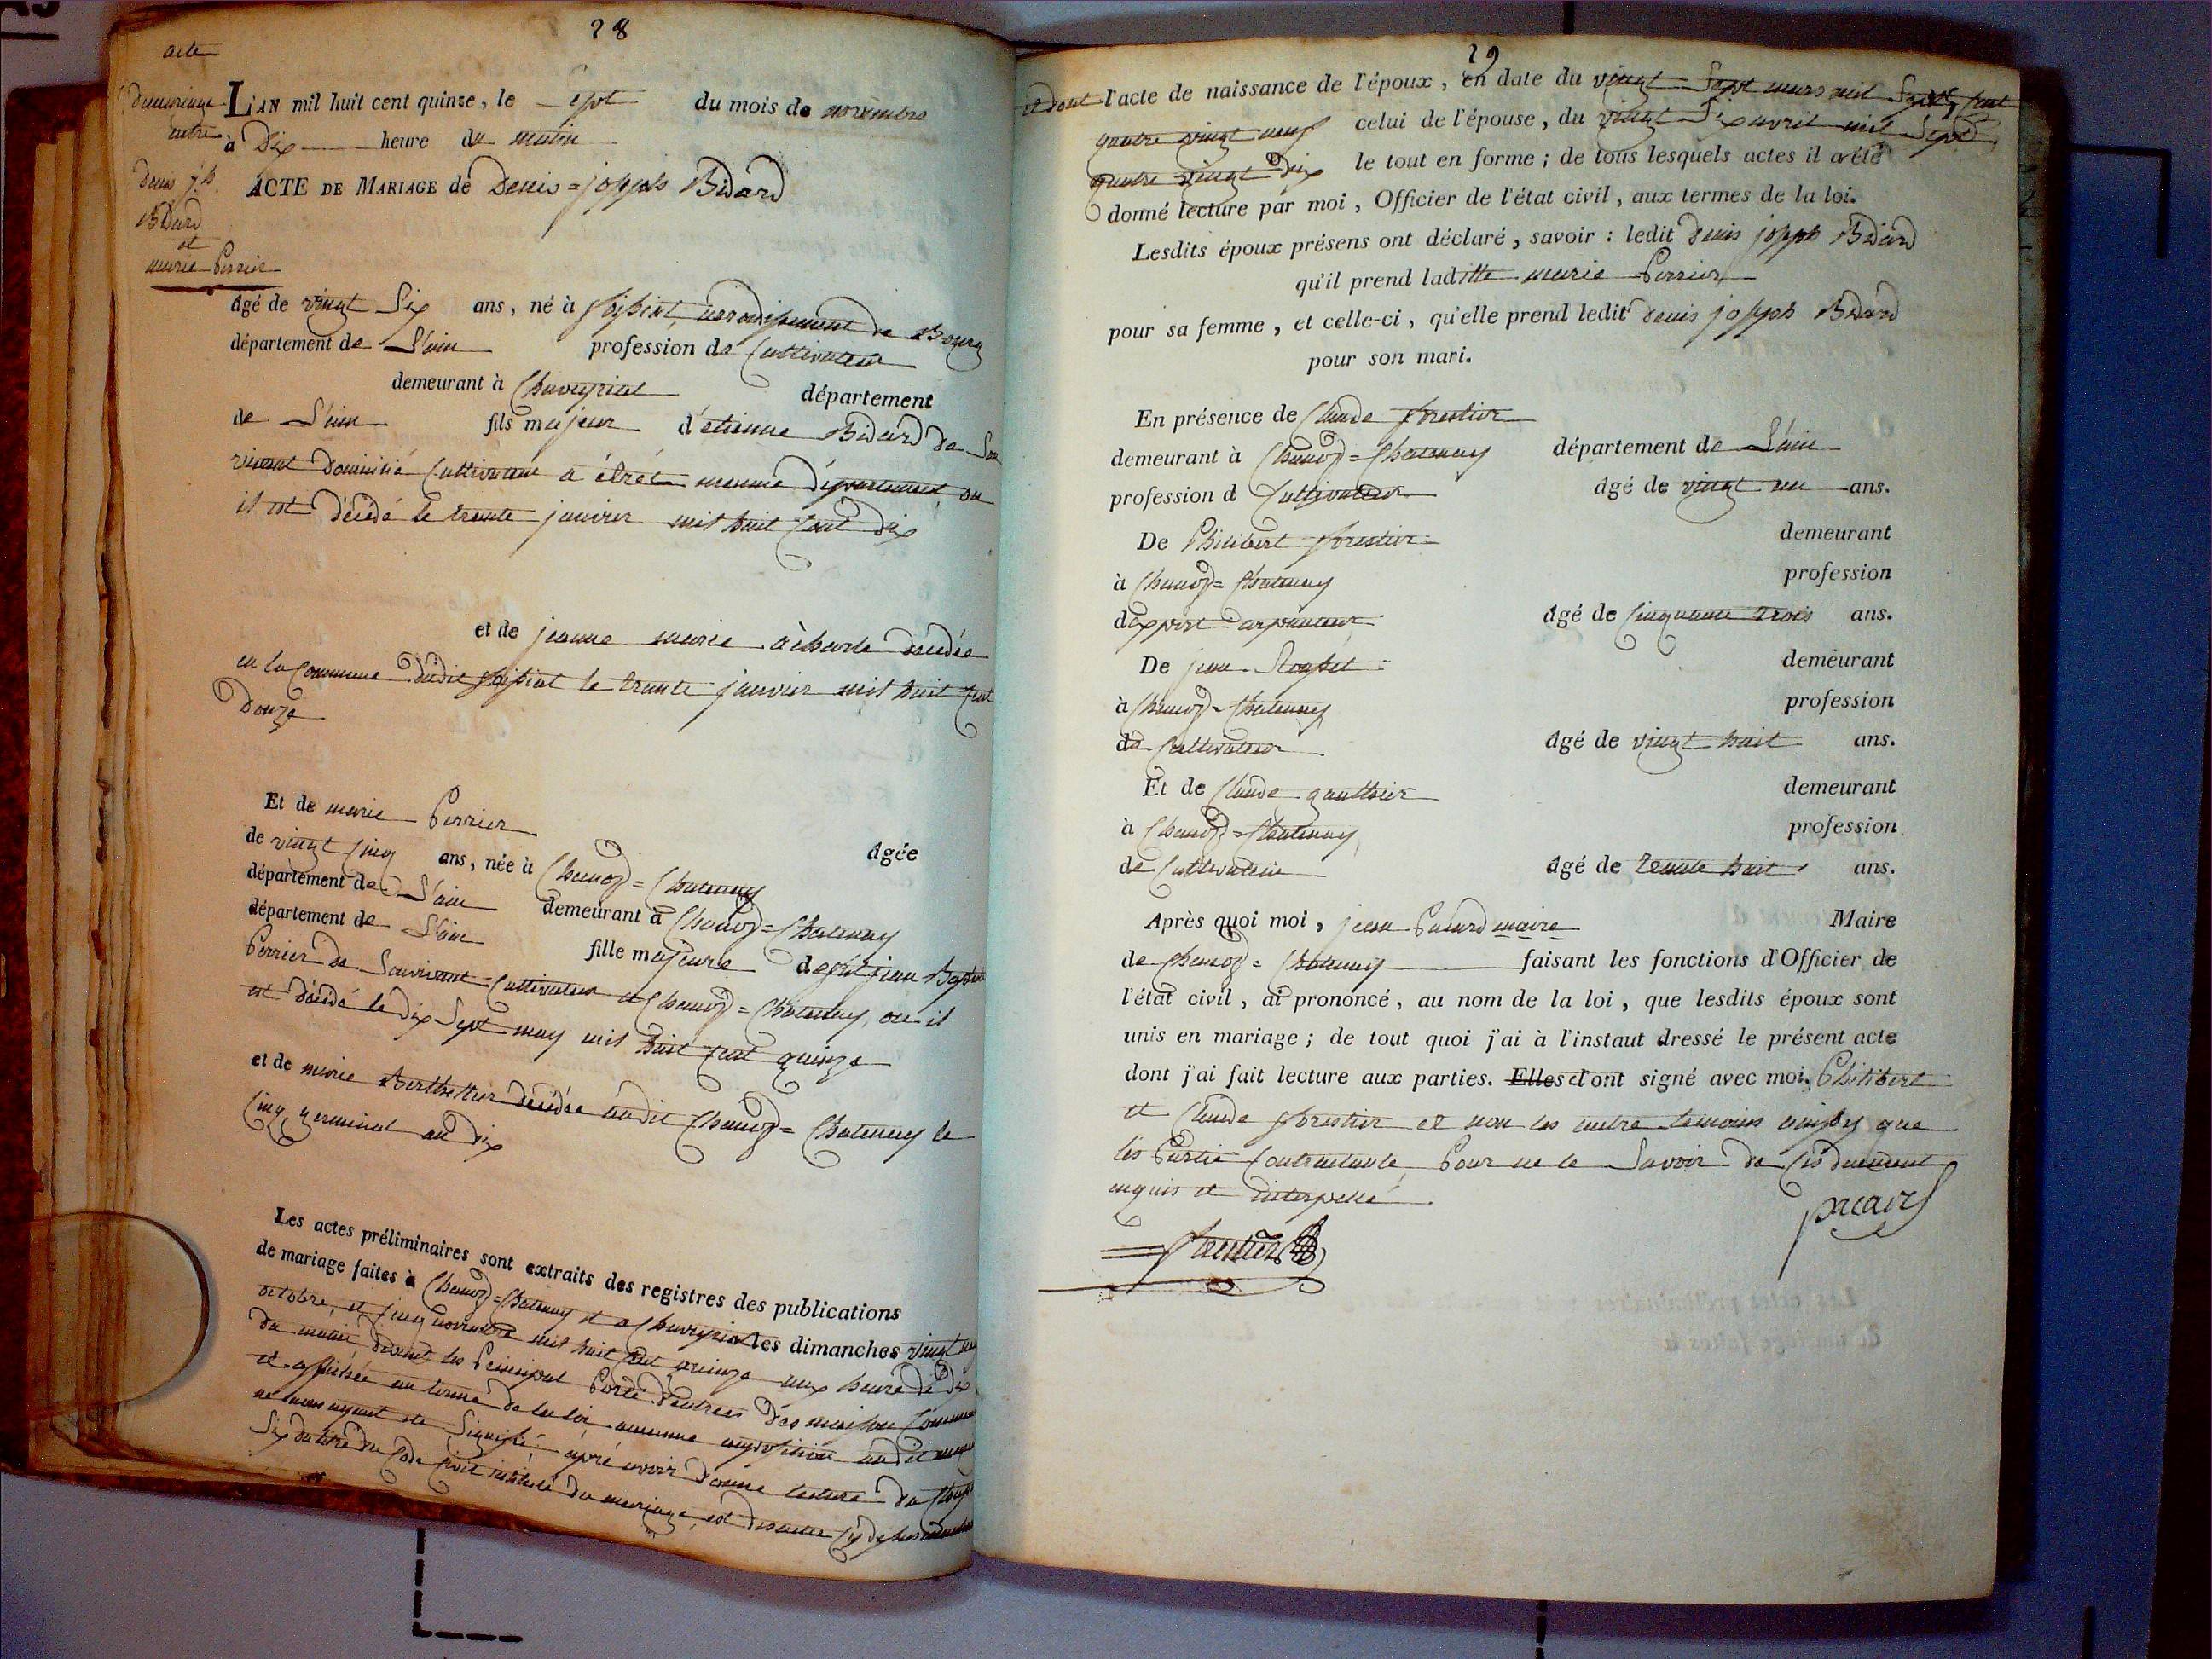 28
acte
de mariage
entre
Denis jh
Bidard
et
marie Perrier
L'AN mil huit cent quinze, le sept du mois de novembre
à Dix heure du matin
ACTE DE MARIAGE de Denis=joseph Bidard
âgé de vingt Six ans, né à foissiat, arrondissement de Bourg
département de L'ain profession de Cultivateur
demeurant à Chaveyriat département
de L'ain fils majeur d'étienne Bidard de Son
vivant domicilié Cultivateur a étrét meme département, ou
il est décédé le trente janvier mil huit Cent dix
et de jeanne marie décédée
en la Commune dudit foissiat le trente janvier mil huit Cent
Douze
Et de marie Perrier âgée
de vingt Cinq ans, née à Chanoz=Chatenay
département de L'ain demeurant à Chanoz=Chatenay
département de L'ain fille majeure de jean Baptiste
Perrier de Son vivant Cultivateur a Chanoz=Chatenay, ou il
est décédé le dix Sept may mil huit Cent quinze
et de marie décédée audit Chanoz=Chatenay le
Cinq germinal an dix
Les actes préliminaires sont extraits des registres des publications
de mariage faites à Chanoz=Chatenay et a Chaveyriat les dimanches vingt
octobre, et Cinq novembre mil huit Cent quinze aux heure de dix
du matin, devant les Principal Porte d'entrées des maison Commune
et affichée au terme de la loi aucunne opposition audit
ne nous ayant été Signifié après avoir donné lecture du
Six du titre du Code Civil intitulé du mariage, et
29
et dont l'acte de naissance de l'époux, en date du vingt Sept mars mil Sept Cent
quatre vingt neuf celui de l'épouse, du vingt Six avril mil Sept
quatre vingt dix le tout en forme ; de tous lesquels actes il a été
donné lecture par moi, Officier de l'état civil, aux termes de la loi.
Lesdits époux présens ont déclaré, savoir : ledit denis joseph Bidard
qu'il prend laditte marie Perrier
pour sa femme, et celle-ci, qu'elle prend ledit denis joseph Bidard
pour son mari.
En présence de Claude forestier
demeurant à Chanoz=Chatenay département de L'ain
profession d Cultivateur âgé de vingt un ans.
De Philibert forestier demeurant
à Chanoz=Chatenay profession
d'expert arpenteur âgé de Cinquante trois ans.
De jean demeurant
à Chanoz=Chatenay profession
de Cultivateur âgé de vingt huit ans.
Et de Claude gauthier demeurant
à Chanoz=Chatenay profession
de Cultivateur âgé de trente huit ans.
Après quoi moi, jean maire Maire
de Chanoz=Chatenay faisant les fonctions d'Officier de
l'état civil, ai prononcé, au nom de la loi, que lesdits époux sont
unis en mariage ; de tout quoi j'ai à l'instaut dressé le présent acte
dont j'ai fait lecture aux parties. Elles et ont signé avec moi. Philibert
et Claude forestier et non les autre temoins que
les Partie Contractante, Pour ne le Savoir de Ces duement
enquis et interpellé